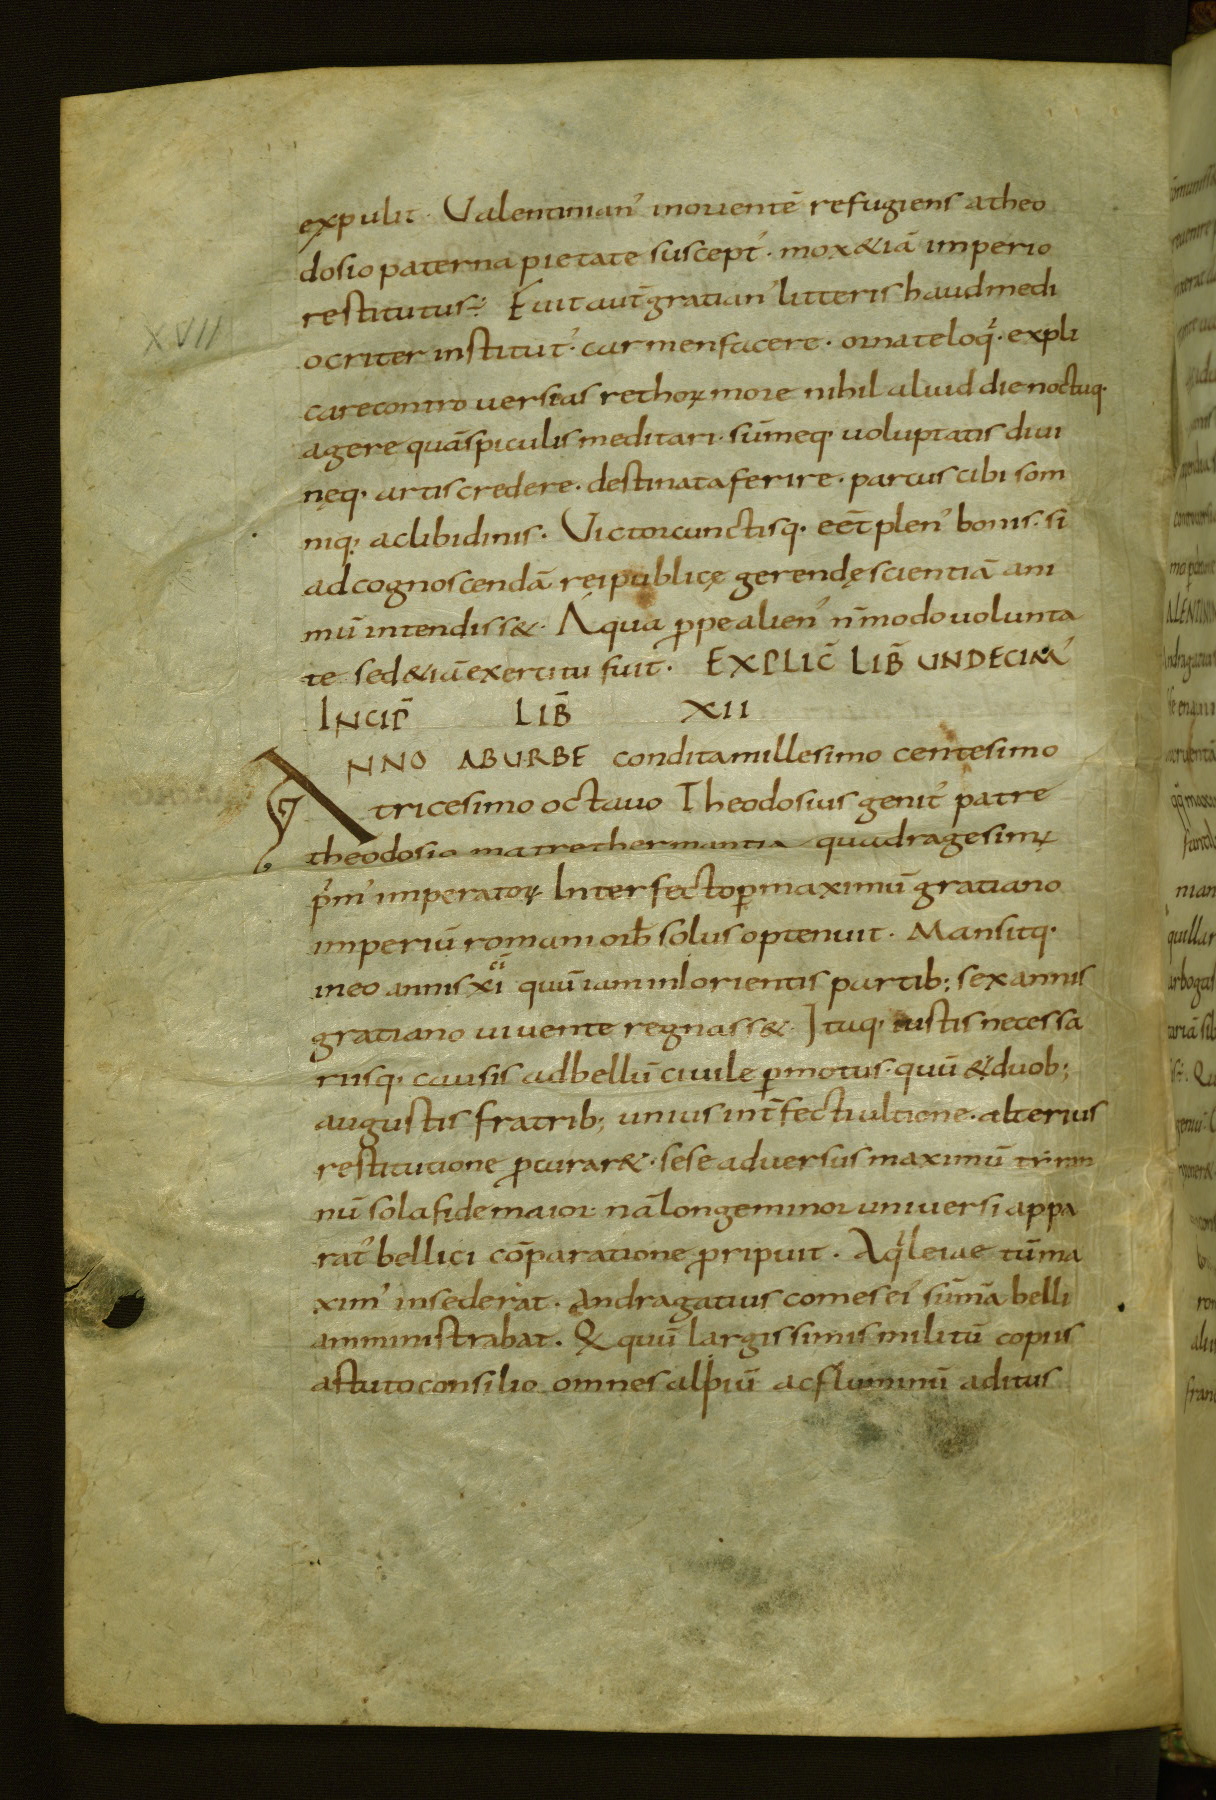 expulit · Valentinian' inorientē refugiens atheo
dosio paterna pietate suscept' · mox &iā imperio
restitutus · Fuit aut̄ gratian' litteris haud medi
XVII
ocriter institut' · carmen facere · ornate loq' · expli
care controversias rethoꝝ more nihil aliud die noctuq·
agere quā spiculis meditari · sūmeq· voluptatis divi
nęq· artis credere · destinata ferire · parcus cibi som
niq· ac libidinis · Victor cunctisq· eēt plen' bonis · si
ad cognoscendā rei publicę gerendę scientiā ani
mū intendiss& · A qua ꝓpe alien' n̄ modo volunta
te sed &iā exercitu fuit · EXPLIC̄ LIB̄ UNDECIM'
INCIP̄ LIB̄ XII
ANNO AB URBE condita millesimo centesimo
tricesimo octavo Theodosius genit' patre
theodosio matre thermantia quadragesim'
p'm' imperatoꝝ Interfecto ꝑ maximū gratiano
imperiū romani orb̄ solus optenuit · Mansitq·
in eo annis xi quū iam in orientis partib; sex annis
gratiano vivente regnass& · Itaq· iustis necessa
riisq· causis ad bellū civile ꝑmotus · quū & duob;
augustis fratrib; unius int̄fecti ultione · alterius
restitutione ꝓcurar& · sese adversus maximū tiran
nū sola fide maior · nā longe minor universi appa
rat' bellici cōparatione ꝓripuit · Aq'leiae tū ma
xim' insederat · Andragatius comes ei' sūmā belli
amministrabat · Q' quū largissimis militū copiis
astuto consilio omnes alpiū ac fluminū aditus